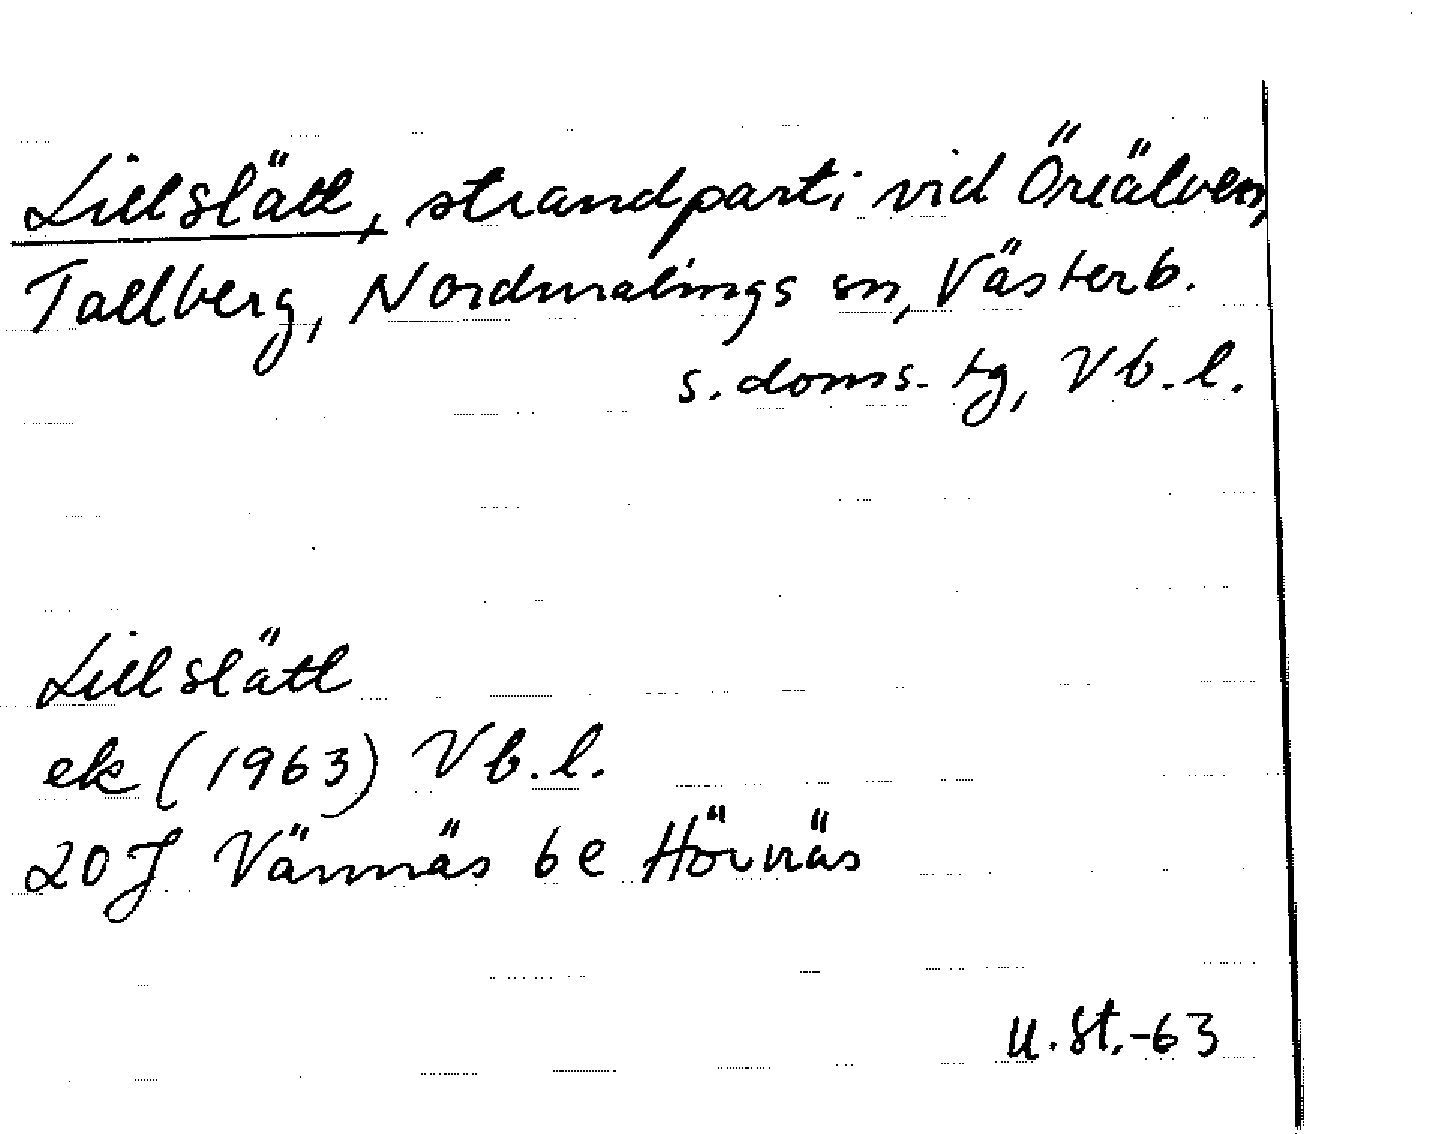 Lillslätt, strandparti vid Öreälven,
Tallberg, Nordmalings sn, Västerb.
s. doms. tg, Vb. l.
Lillslätt
ek (1963) Vb. l.
20 J Vännäs 6 e Hörnäs
U. St. -63